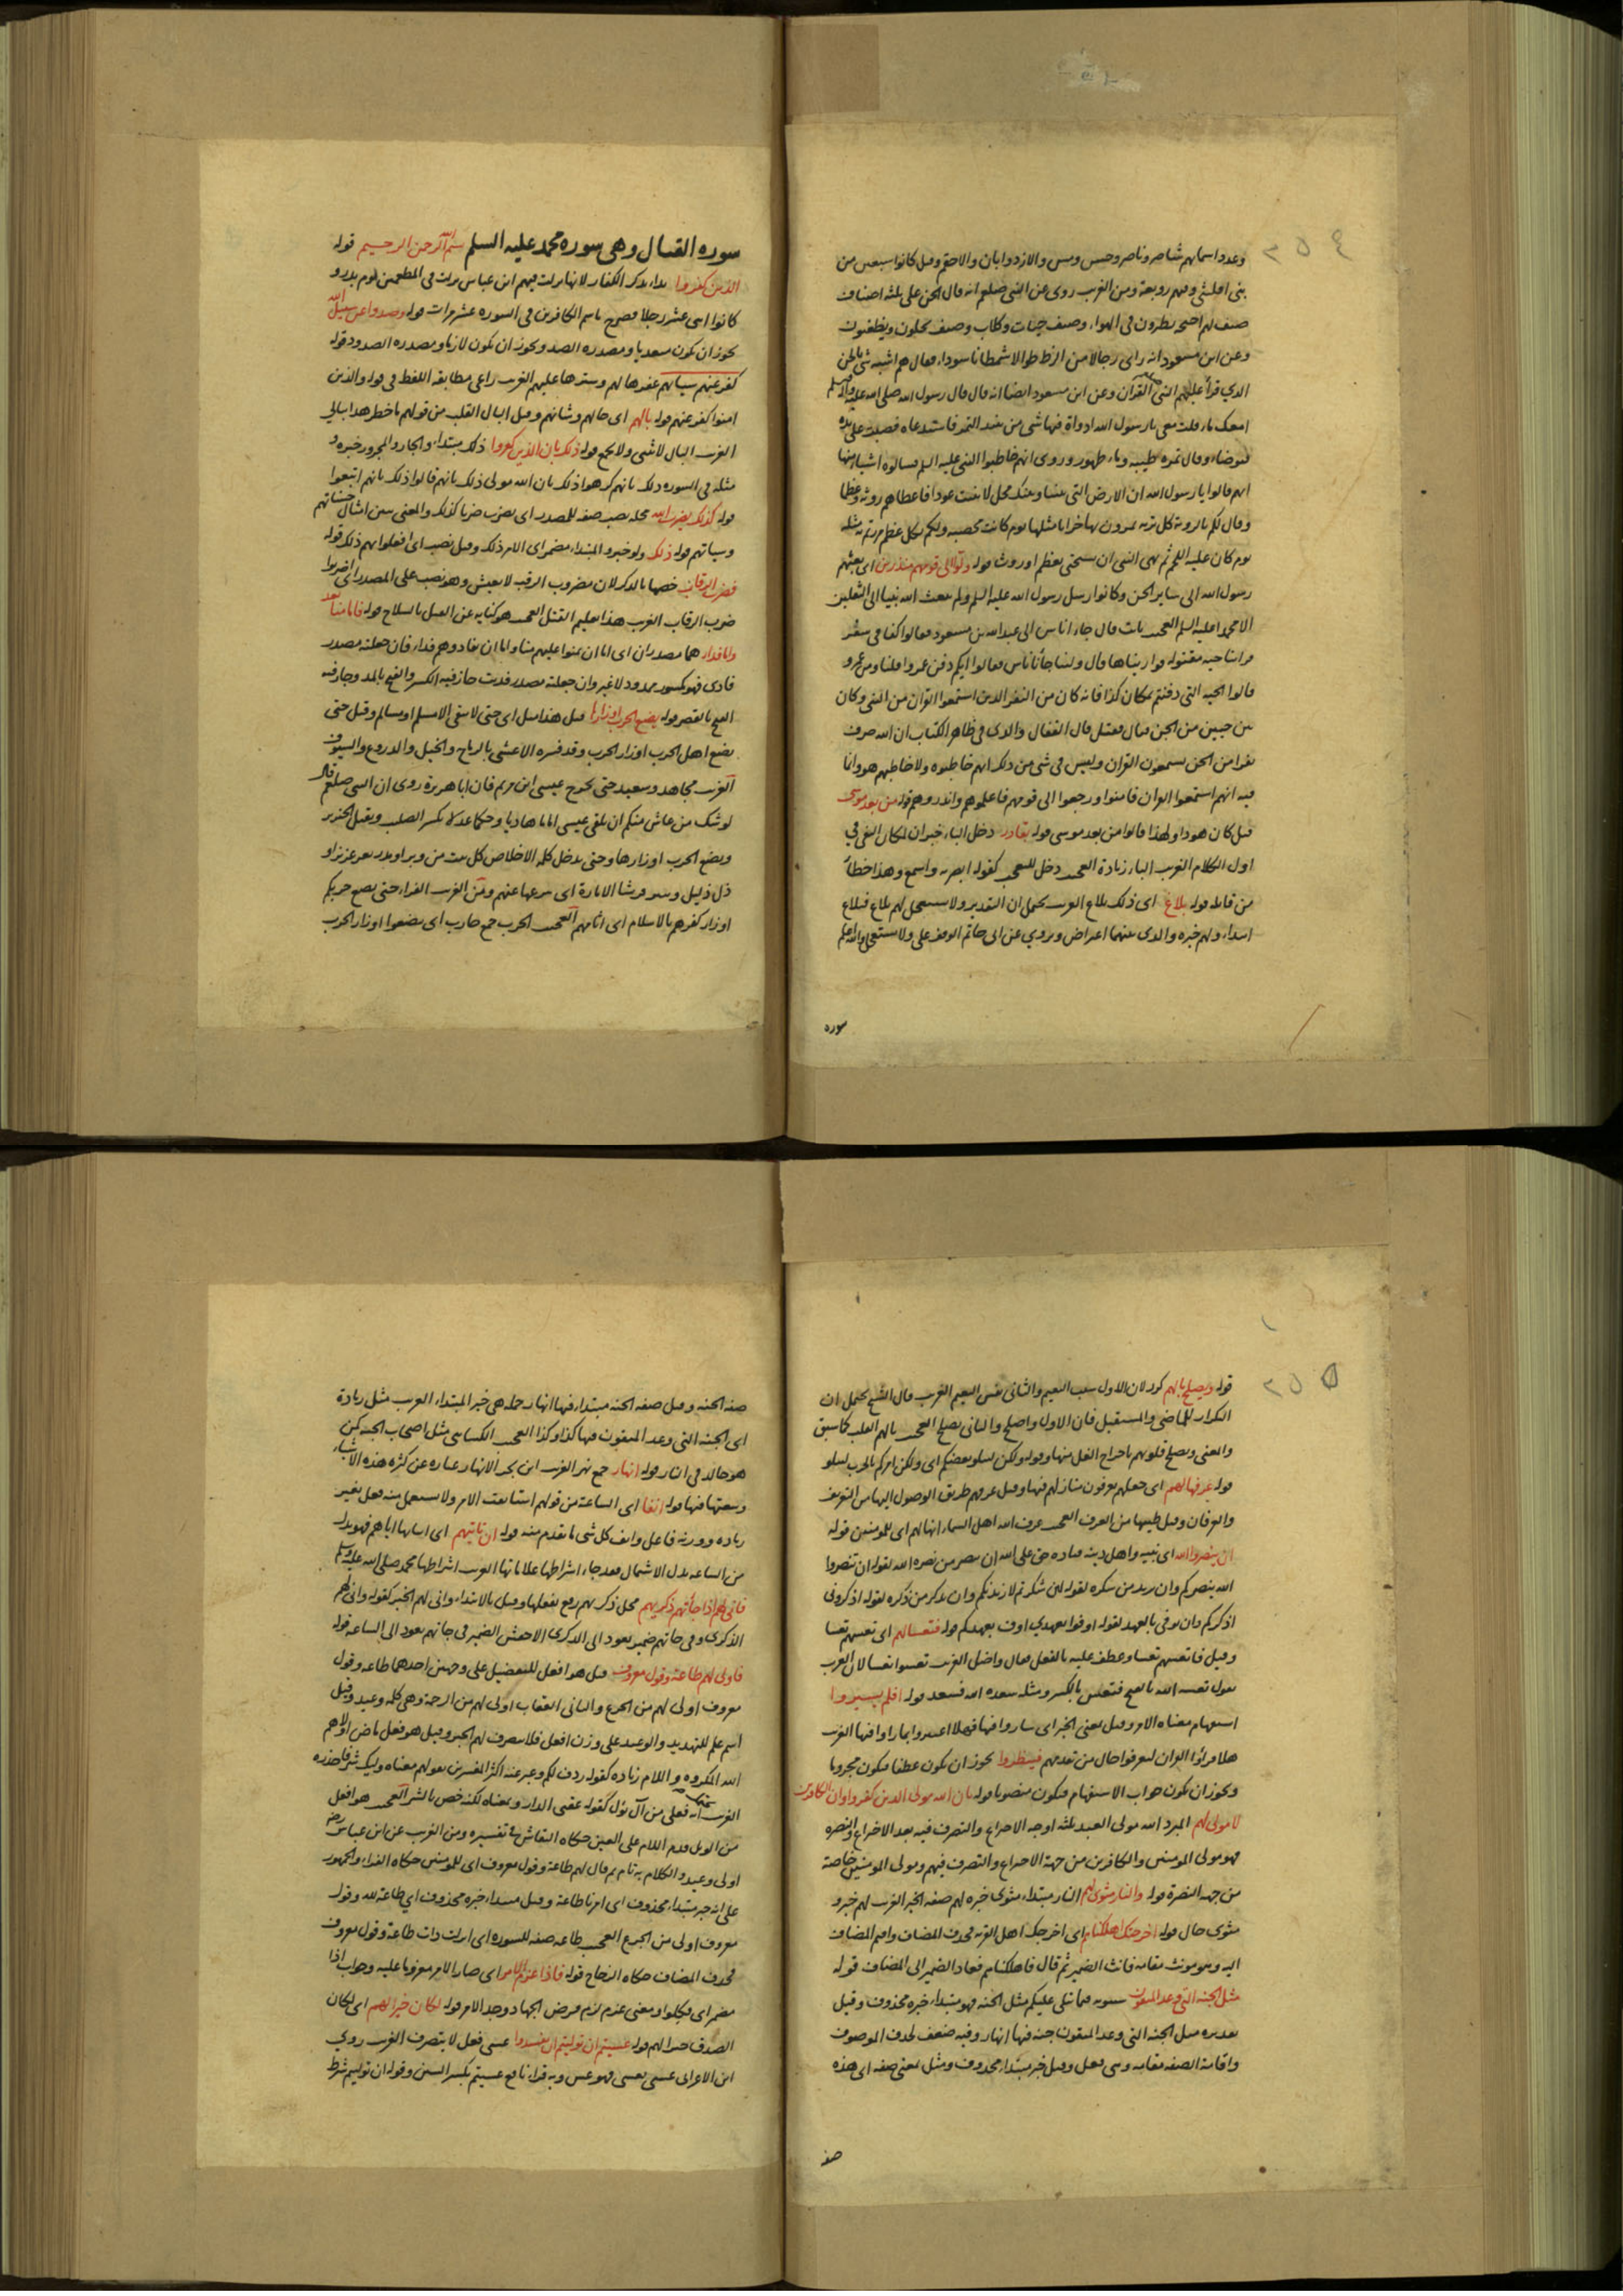 ٢٥٤
وعدوا اسماءهم شاصر وناصر وحس ومس والازد وابان والاحقم وقيل كانوا سبعين من
صنف لهم اجنحة يطيرون في الهواء وصنف حيات وكلاب وصنف يحلون ويظعنون
الذي قرأ عليهم النبي القرآن وعن ابن مسعود ايضا انه قال قال رسول الله صلى الله عليه وسلم
امعك ماء قلت معي يا رسول الله اداوة فيها شي من نبيذ التمر فاستدعاه فصببت على يده
فتوضأ وقال تمرة طيبة وماء طهور وروى انهم خاطبوا النبي عليه السلم فسالوه اشياء منها
يوم كان عليه اللحم ثم نهى النبي ان يستنجى بعظم او روث قوله ولوا الى قومهم منذرين اى بعثهم
رسول الله الى ساير الجن وكانوا رسل رسول الله عليه السلم ولم يبعث الله نبيا الى الثقلين
الا محمدا عليه السلم العجيب ثابت قال جاء اناس الى عبد الله بن مسعود فقالوا كنا في سفر
قالوا الحية التي دفنتم بمكان كذا فانه كان من النفر الذين استمعوا القران من النبي وكان
بين حيين من الجن قتال فقتل قال القفال والذى في ظاهر الكتاب ان الله صرف
نفرا من الجن يستمعون القران وليس في شي من ذلك انهم خاطبوه ولا خاطبهم هو وانما
فيه انهم استمعوا القران فامنوا ورجعوا الى قومهم فاعلموهم وانذروهم قوله من بعد موسى
قيل كان هودا ولهذا قالوا من بعد موسى قوله بقادر دخل الباء خبر ان لمكان النفي في
اول الكلام الغريب الباء زيادة العجيب دخل للتعجب كقوله ابصر به واسمع وهذا خطأ
من قايله قوله بلاغ اى ذلك بلاغ الغريب يحتمل ان التقدير ولا تستعجل لهم بلاغ فبلاغ
ابتداء ولهم خبره والذى بينهما اعتراض وروي عن ابى حاتم الوقف على ولا تستعجل والله اعلم
سورة
سورة القتال وهى سورة محمد عليه السلم بسم الله الرحمن الرحيم قوله
الذين كفروا بداء بذكر الكفار لانها نزلت فيهم ابن عباس نزلت في المطعمين يوم بدر و
كانوا اثنى عشر رجلا فصرح باسم الكافرين في السورة عشر مرات قوله وصدوا عن سبيل الله
يجوز ان يكون متعديا ومصدره الصد ويجوز ان يكون لازما ومصدره الصدود قوله
كفر عنهم سياتهم غفرها لهم وسترها عليهم الغريب راعى مطابقة اللفظ في قوله والذين
امنوا كفر عنهم قوله بالهم اى حالهم وشانهم وقيل البال القلب من قولهم ما خطر هذا ببالي
الغريب البال لا يثنى ولا يجمع قوله ذلك بان الذين كفروا ذلك مبتداء والجار والمجرور خبره و
مثله في السورة ذلك بانهم كرهوا ذلك بان الله مولى ذلك بانهم قالوا ذلك بانهم اتبعوا
قوله كذلك يضرب الله محله نصب صفة للمصدر اى يضرب ضربا كذلك والمعنى يبين امثال حسناتهم
وسياتهم قوله ذلك ولو خبر والمبتداء مضمر اى الامر ذلك وقيل نصب اى افعلوا بهم ذلك قوله
فضرب الرقاب خصها بالذكر لان مضروب الرقبة لا يعيش وهو نصب على المصدر اى اضربوا
ضرب الرقاب الغريب هذا تعليم القتل العجيب هو كناية عن القتل بالسلاح قوله فاما منا بعد
واما فداء هما مصدران اى اما ان تمنوا عليهم منا واما ان تفادوهم فداء فان جعلته مصدر
فادى فهو مكسور ممدود لا غير وان جعلته مصدر فديت جاز فيه الكسر والفتح بالمد وجاز فيه
الفتح بالقصر قوله تضع الحرب اوزارها قيل هذا مثل اى حتى لا يبقى الا مسلم او مسالم وقيل حتى
يضع اهل الحرب اوزار الحرب وقد فسره الاعشى بالرماح والخيل والدروع والسيوف
الغريب مجاهد وسعيد حتى يخرج عيسى ابن مريم فان ابا هريرة روى ان النبي صلعم قال
يوشك من عاش منكم ان يلقى عيسى اماما هاديا وحكما عدلا يكسر الصليب ويقتل الخنزير
ويضع الحرب اوزارها وحتى يدخل كلمة الاخلاص كل بيت من وبر او مدر بعز عزيز او
اوزار كفرهم بالاسلام اى اثامهم العجيب الحرب جمع حارب اى يضعوا اوزار الحرب
٢٥٥
قوله ويصلح بالهم كرر لان الاول سبب النعيم والثانى نفس النعيم الغريب قال الشيخ يحتمل ان
التكرار للماضى والمستقبل فان الاول واصلح والثانى يصلح العجيب بالهم القلب كما سبق
والمعنى ويصلح قلوبهم باخراج الغل منها وقوله ولكن ليبلو بعضكم اى ولكن امركم بالحرب ليبلو
قوله عرفها لهم اى جعلهم يعرفون منازلهم فيها وقيل عرفهم طريق الوصول اليها من التعريف
والعرفان وقيل طيبها من العرف العجيب عرف الله اهل السماء انها لهم اى للمومنين قوله
ان تنصروا الله اى نبيه واهل دينه عباده حق على الله ان ينصر من نصره الله لقوله ان تنصروا
الله ينصركم وان يزيد من شكره لقوله لئن شكرتم لازيدنكم وان يذكر من ذكره لقوله اذكروني
اذكركم وان يوفى بالعهد لقوله اوفوا بعهدي اوف بعهدكم قوله فتعسا لهم اى تعسهم تعسا
وقيل فاتعسهم تعسا وعطف عليه بالفعل فقال واضل الغريب تعسوا تعسا لان العرب
يقول تعسه الله بالفتح فتعس بالكسر ومثله سعده الله فسعد قوله افلم يسيروا
هلا قرأوا القران ليعرفوا حال من تقدمهم فينظروا يجوز ان يكون عطفا فيكون مجزوما
ويجوز ان يكون جواب الاستفهام فيكون منصوبا قوله بان الله مولى الذين كفروا وان الكافرين
لا مولى لهم المبرد الله مولى العبد بثلثة اوجه الاختراع والتصرف فيه بعد الاختراع والنصرة
فهو مولى المومنين والكافرين من جهة الاختراع والتصرف فيهم ومولى المومنين خاصة
من جهة النصرة قوله والنار مثوى لهم النار مبتداء مثوى خبره لهم صفة الخبر الغريب لهم خبر و
مثوى حال قوله اخرجتك اهلكناهم اى اخرجك اهل القرية فحذف المضاف واقيم المضاف
اليه وهو مونث مقامه فانث الضمير ثم قال فاهلكناهم فعاد الضمير الى المضاف قوله
مثل الجنة التى وعد المتقون سيبويه فيما يتلى عليكم مثل الجنة فهو مبتداء خبره محذوف وقيل
تقديره مثل الجنة التى وعد المتقون جنة فيها انهار وفيه ضعف لحذف الموصوف
واقامة الصفة مقامه وهى فعل وقيل خبر مبتداء محذوف ومثل بمعنى صفة اى هذه
صفة
صفة الجنة وقيل صفة الجنة مبتداء فيها انهار جملة هى خبر المبتداء الغريب مثل زيادة
اى الجنة التى وعد المتقون فيها كذا وكذا العجيب الكسائى مثل اصحاب الجنة كمن
هو خالد في النار قوله انهار جمع نهر الغريب ابن بحر الانهار عبارة عن كثرة هذه الاشياء
وسعتها فيها قوله انفا اى الساعة من قولهم استانفت الامر ولا يستعمل منه فعل بغير
زيادة ووزنه فاعل وانف كل شى ما تقدم منه قوله ان تاتيهم اى اتيانها اياهم فهو بدل
من الساعة بدل الاشتمال فقد جاء اشراطها علاماتها الغريب اشراطها محمد صلى الله عليه وسلم
فانى لهم اذا جائتهم ذكريهم محل ذكريهم رفع بفعلها وقيل بالابتداء وانى لهم الخبر كقوله وانى لهم
الذكرى وفي جاتهم ضمير يعود الى الذكرى الاخفش الضمير في جاتهم يعود الى الساعة قوله
فاولى لهم طاعة وقول معروف قيل هو افعل للتفضيل على وجهين احدهما طاعة وقول
معروف اولى لهم من الجزع والثانى العقاب اولى لهم من الرحمة وهى كلمة وعيد وقيل
اسم علم للتهديد والوعيد على وزن افعل فلا ينصرف لهم الخبر وقيل هو فعل ماض اولاهم
الله المكروه واللام زيادة كقوله ردف لكم وعبر عنه اكثر المفسرين بقولهم معناه وليك شر فاحذره
من الويل قدم اللام على العين حكاه النقاش في تفسيره ومن الغريب عن ابن عباس رض
اولى وعيد والكلام به تام ثم قال لهم طاعة وقول معروف اى للمومنين حكاه الفراء والجمهور
على انه خبر مبتداء محذوف اى امرنا طاعة وقيل مبتداء خبره محذوف اي طاعة لله وقول
معروف اولى من الجزع العجيب طاعة صفة للسورة اى انزلت ذات طاعة وقول معروف
فحذف المضاف حكاه الزجاج قوله فاذا عزم الامر اى صار الامر معزوما عليه وجواب اذا
الصدق خيرا لهم قوله عسيتم ان توليتم ان تفسدوا عسى فعل لا يتصرف الغريب روي
ابن الاعرابى عسى يعسى فهو عس وبه قراءة نافع عسيتم بكسر السين وقوله ان توليتم شرط